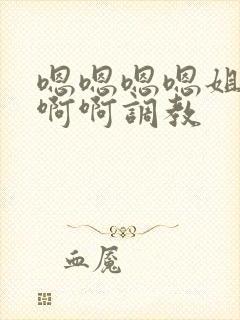 嗯嗯嗯嗯姐
啊啊調教
血魇